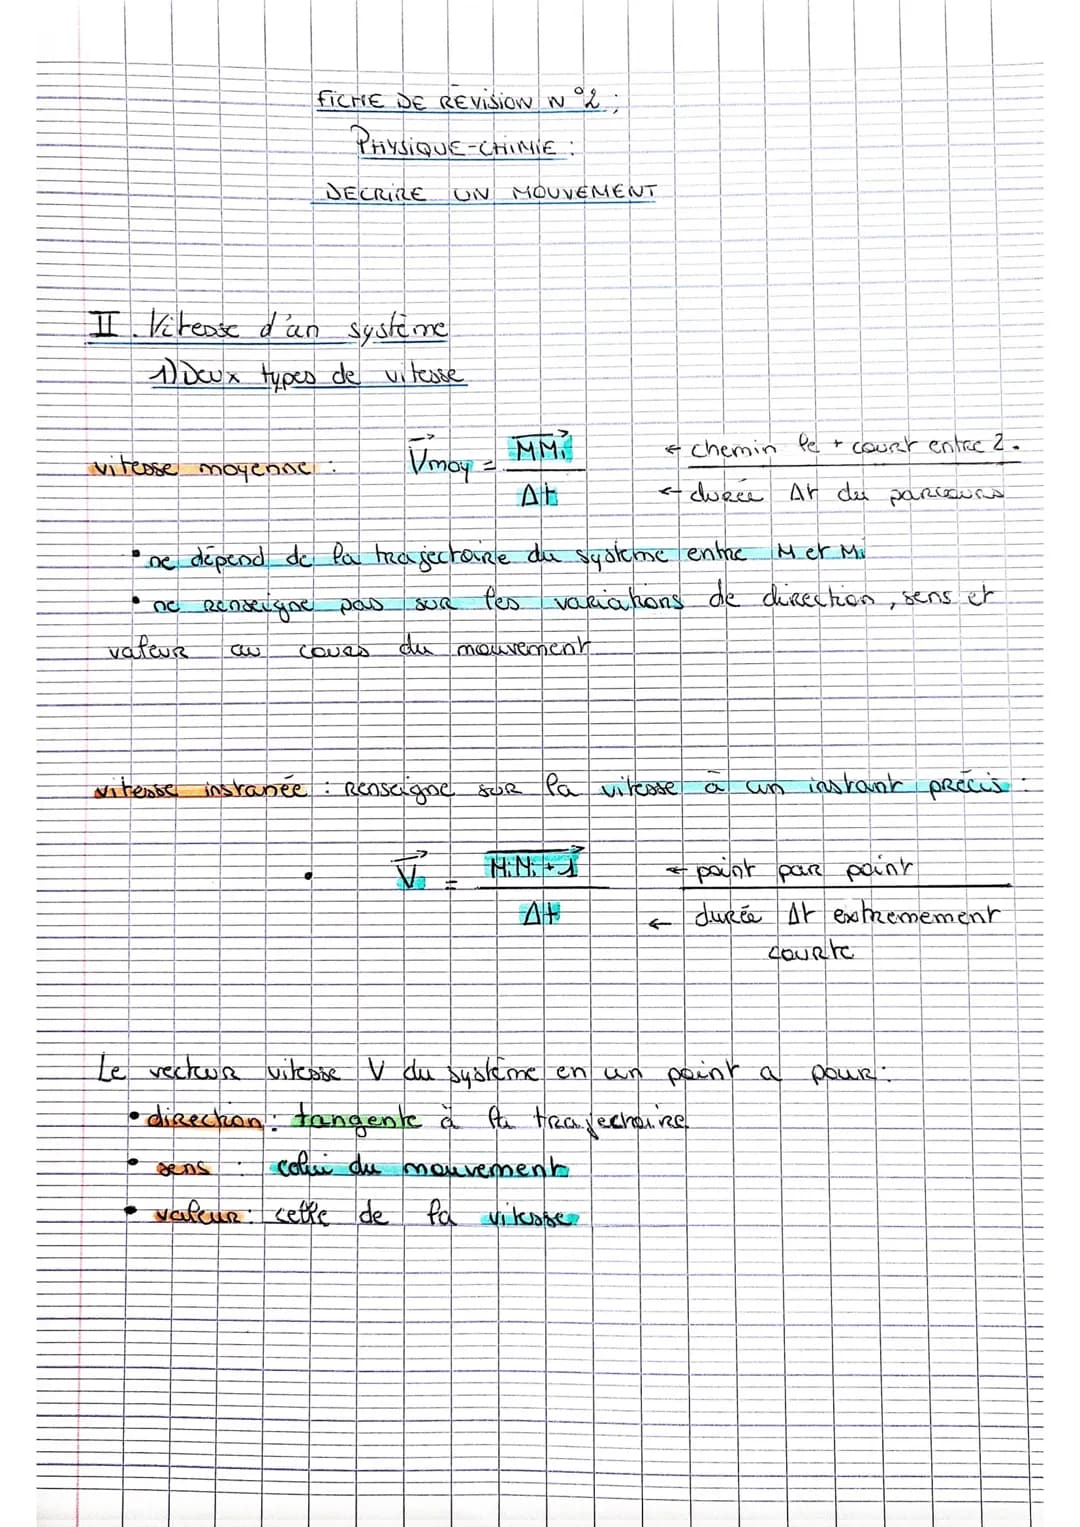 FICHE DE REVISION N°2 :
PHYSIQUE-CHIMIE :
DECRIRE UN MOUVEMENT
II. Vitesse d'un système
1) Deux types de vitesse
vitesse moyenne : Vmoy = MMi / Δt ← chemin le + court entre 2.
← durée Δt du parcours
• ne dépend de la trajectoire du système entre M et Mi
• ne renseigne pas sur les variations de direction, sens et
valeur au cours du mouvement
vitesse instanée : Renseigne sur la vitesse à un instant précis :
• V = MiMi+1 / Δt ← point par point
← durée Δt extremement
courte
Le vecteur vitesse V du système en un point a pour :
• direction : tangente à la trajectoire
• sens : celui du mouvement
• valeur : celle de la vitesse